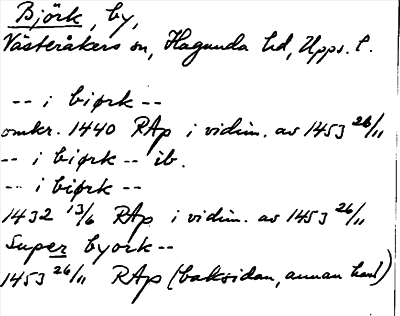 Björk, by,
Västeråkers sn, Hagunda hd, Upps. l.
-- i biørk --
omkr. 1440 RAp i vidim. av 1453 26/11
-- i biørk -- ib.
-- i biørk --
1432 13/6 RAp i vidim. av 1453 26/11
Super byork --
1453 26/11 RAp (baksidan, annan hand)